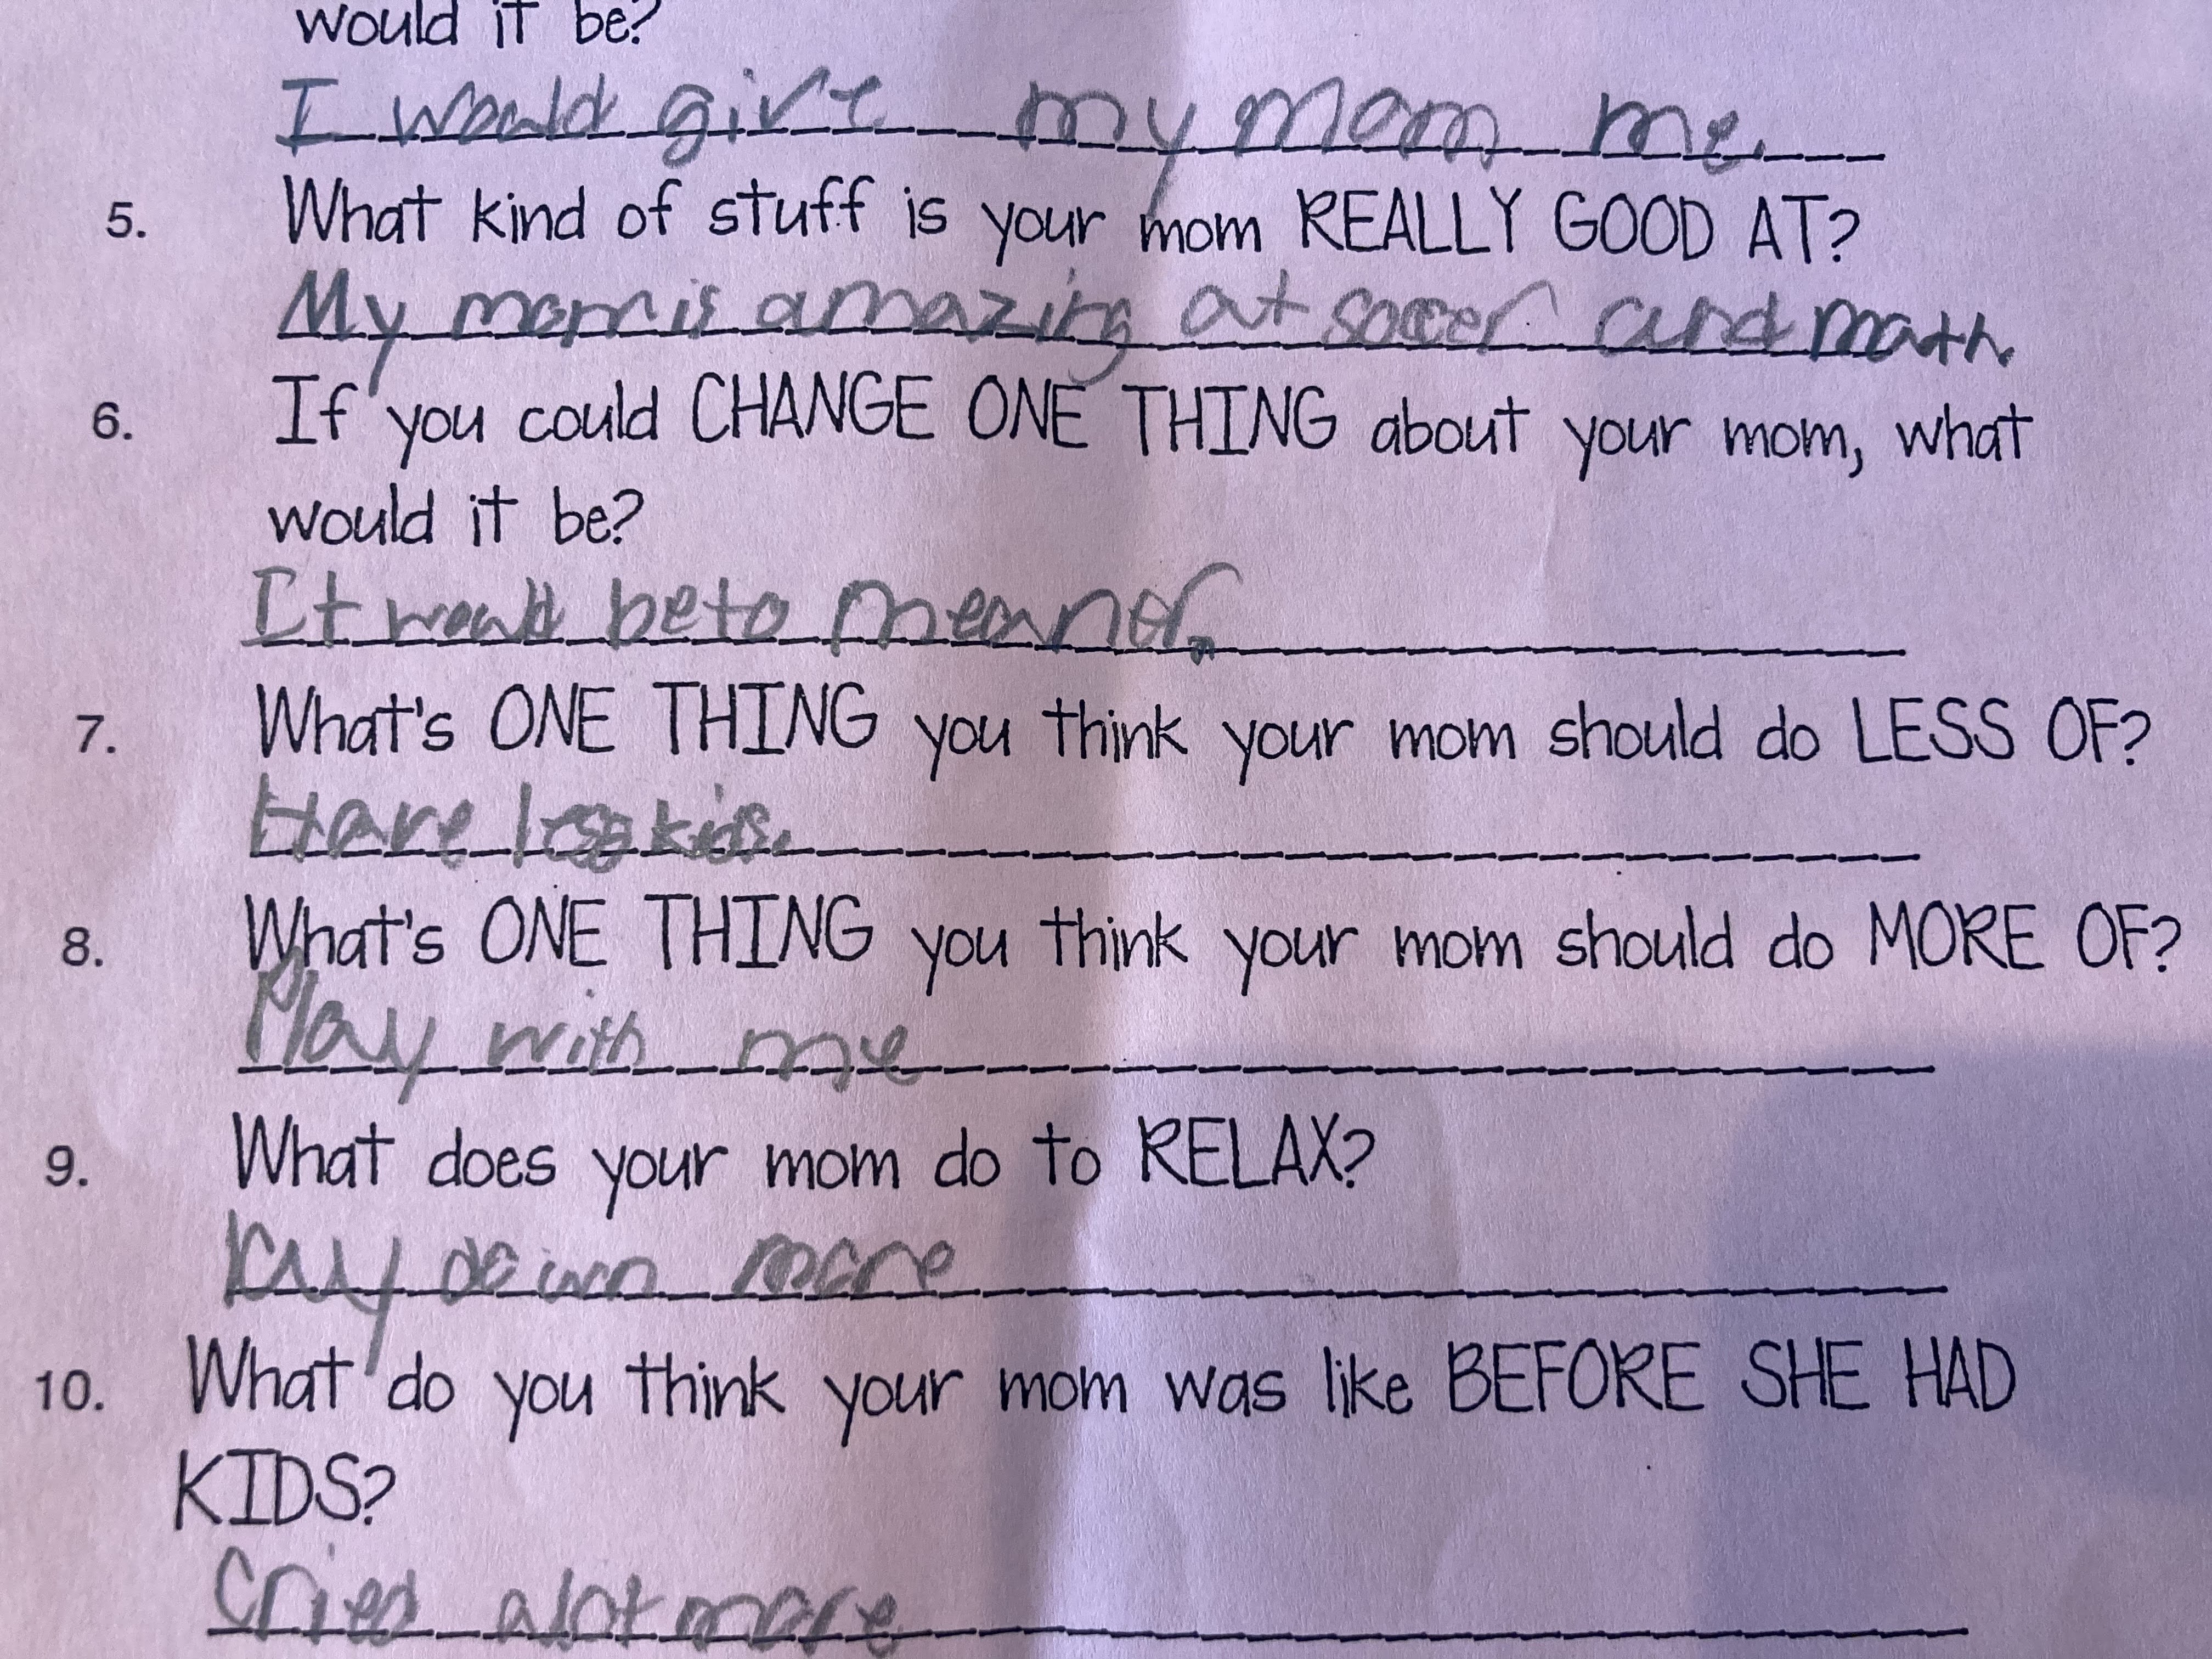 would it be?
I would give my mom me.
5. What kind of stuff is your mom REALLY GOOD AT?
My mom is amazing at soccer and math.
6. If you could CHANGE ONE THING about your mom, what
would it be?
It would be to meaner.
7. What's ONE THING you think your mom should do LESS OF?
Have less kids.
8. What's ONE THING you think your mom should do MORE OF?
Play with me
9. What does your mom do to RELAX?
lay down more
10. What do you think your mom was like BEFORE SHE HAD
KIDS?
Cried alot more